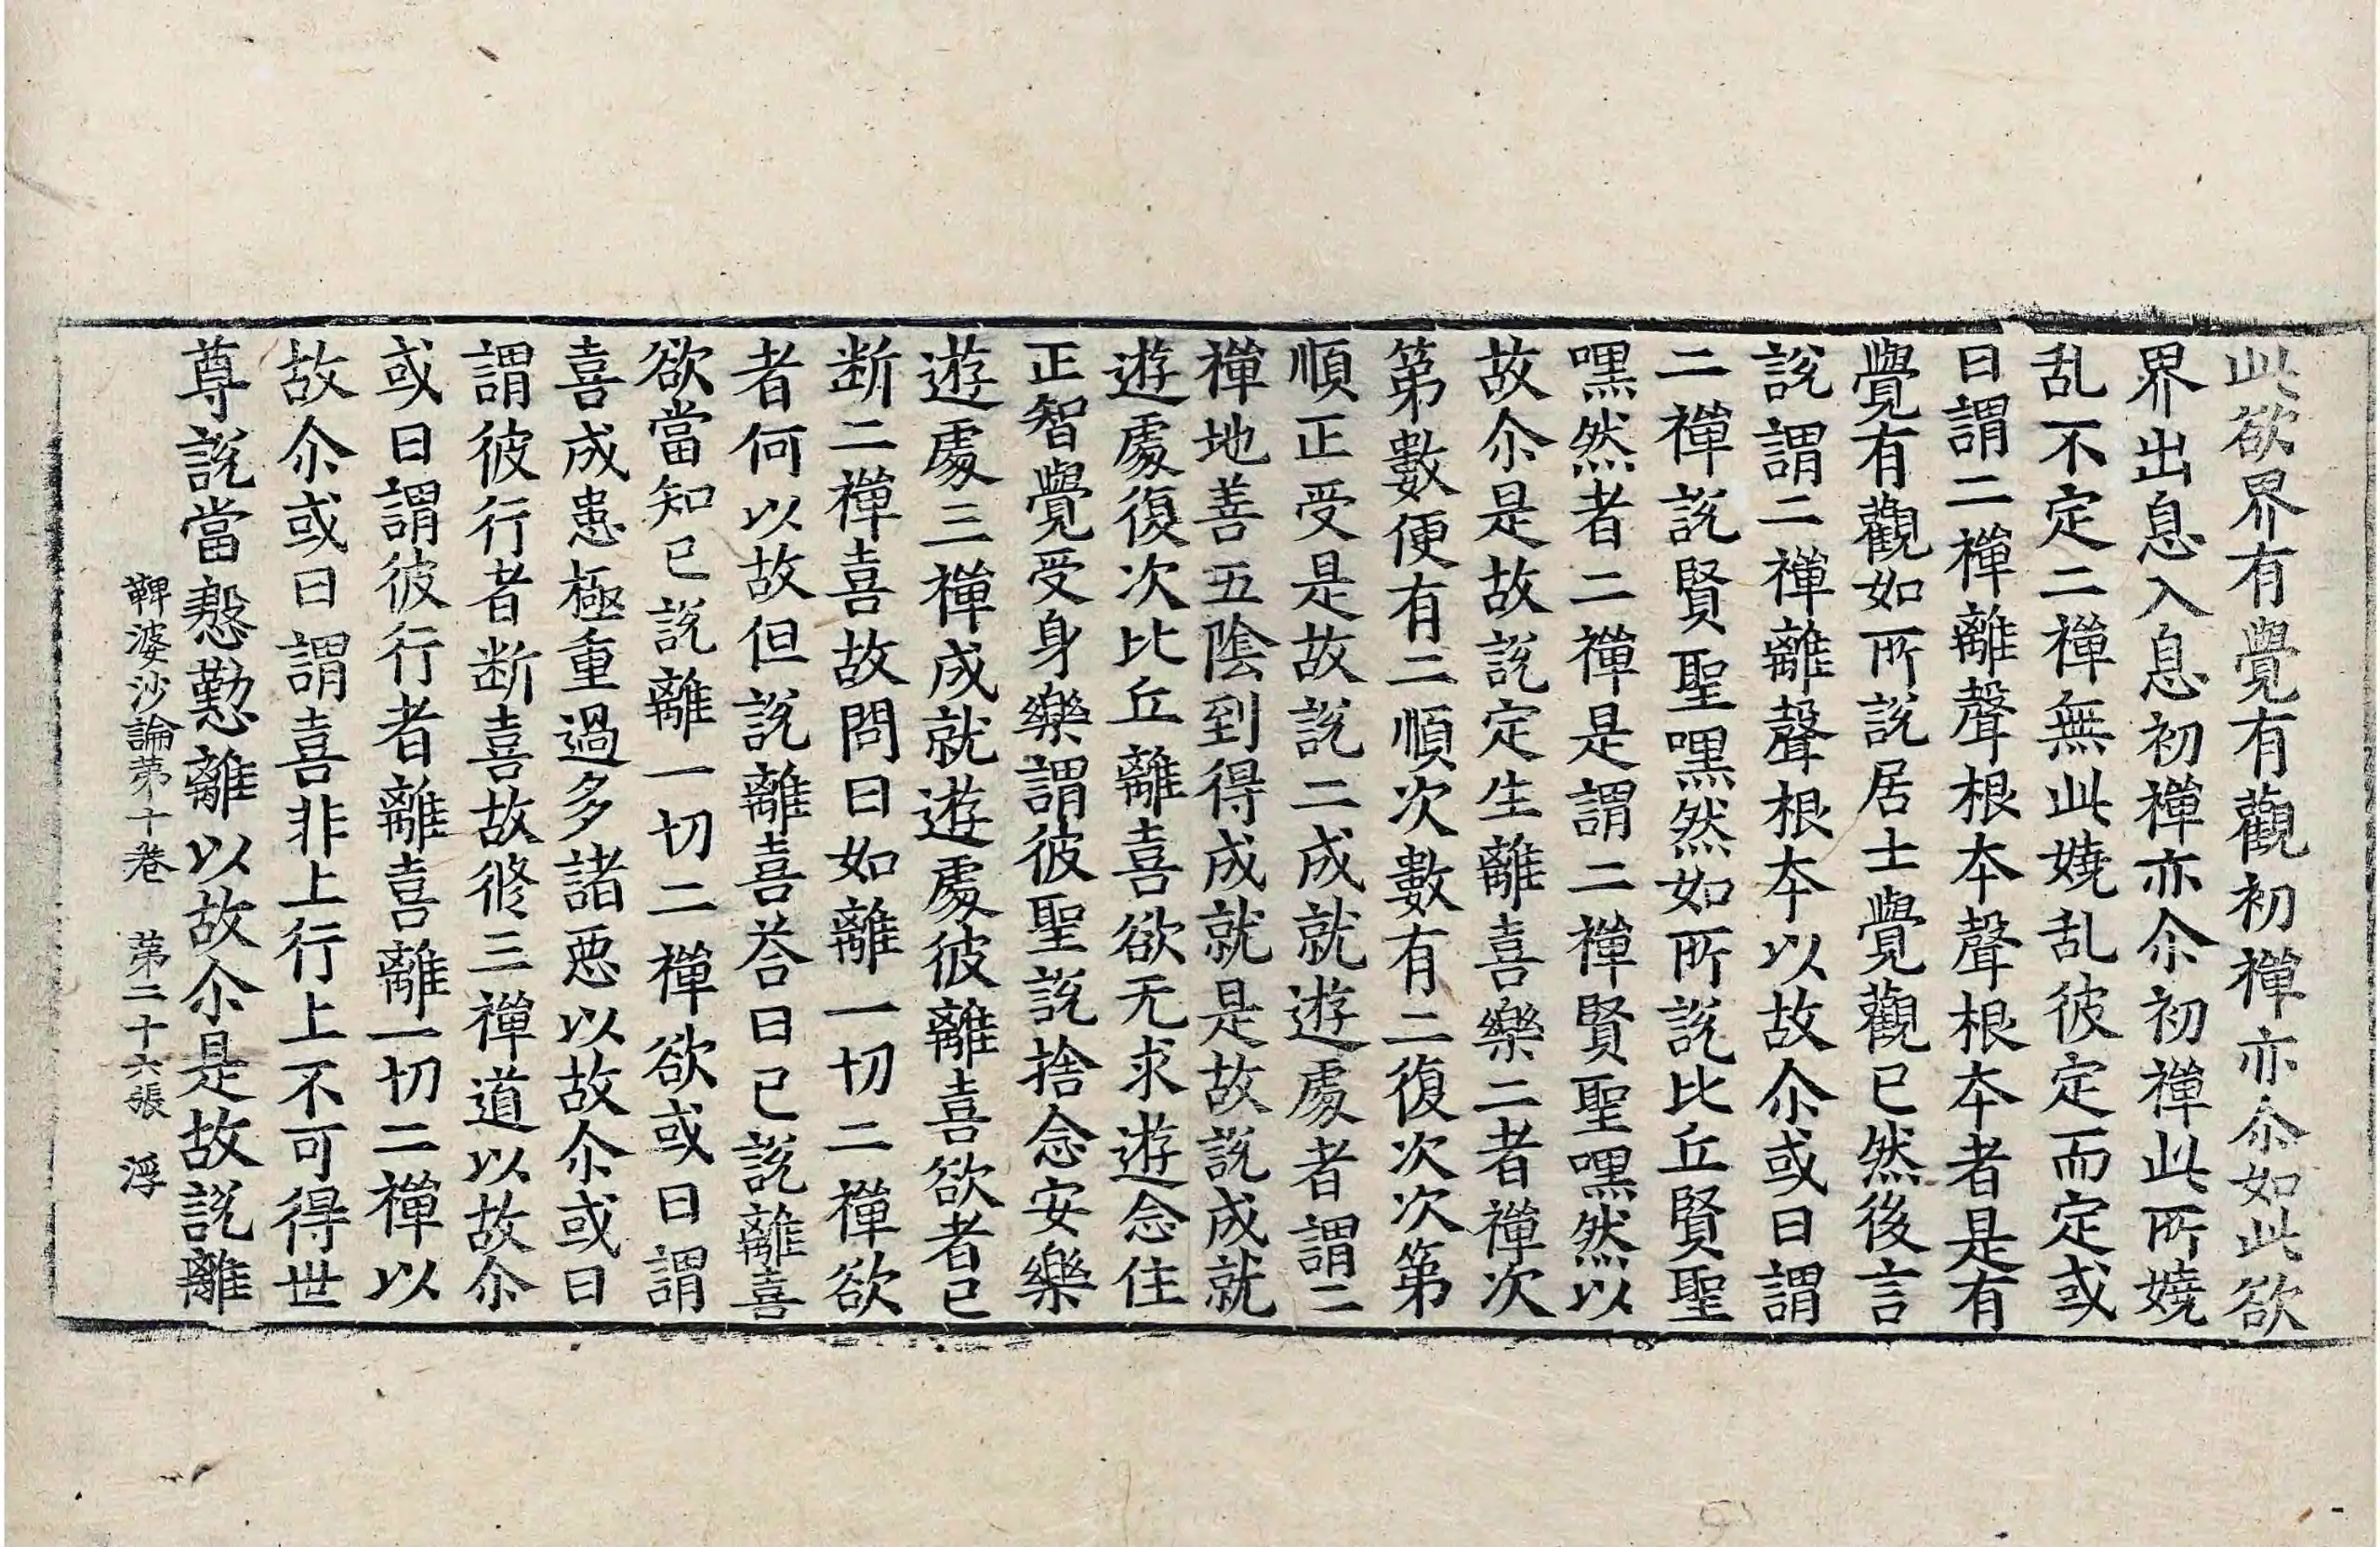 此欲界有覺有觀初禪亦尒如此欲
界出息入息初禪亦尒初禪此所嬈
乱不定二禪無此嬈乱彼定而定或
曰謂二禪離聲根夲聲根夲者是有
覺有觀如所說居士覺觀已然後言
說謂二禪離聲根夲以故尒或曰謂
二禪說賢聖嘿然如所說比丘賢聖
嘿然者二禪是謂二禪賢聖嘿然以
故尒是故說定生離喜樂二者禪次
第數便有二順次數有二復次次第
順正受是故說二成就遊處者謂二
禪地善五陰到得成就是故說成就
遊處復次比丘離喜欲无求遊念住
正智覺受身樂謂彼聖說捨念安樂
遊處三禪成就遊處彼離喜欲者已
断二禪喜故問曰如離一切二禪欲
者何以故但說離喜荅曰已說離喜
欲當知已說離一切二禪欲或曰謂
喜成患極重過多諸惡以故尒或曰
謂彼行者断喜故修三禪道以故尒
或曰謂彼行者離喜離一切二禪以
故尒或曰謂喜非上行上不可得世
尊說當慇懃離以故尒是故說離
鞞婆沙論苐十卷　苐二十六張　浮